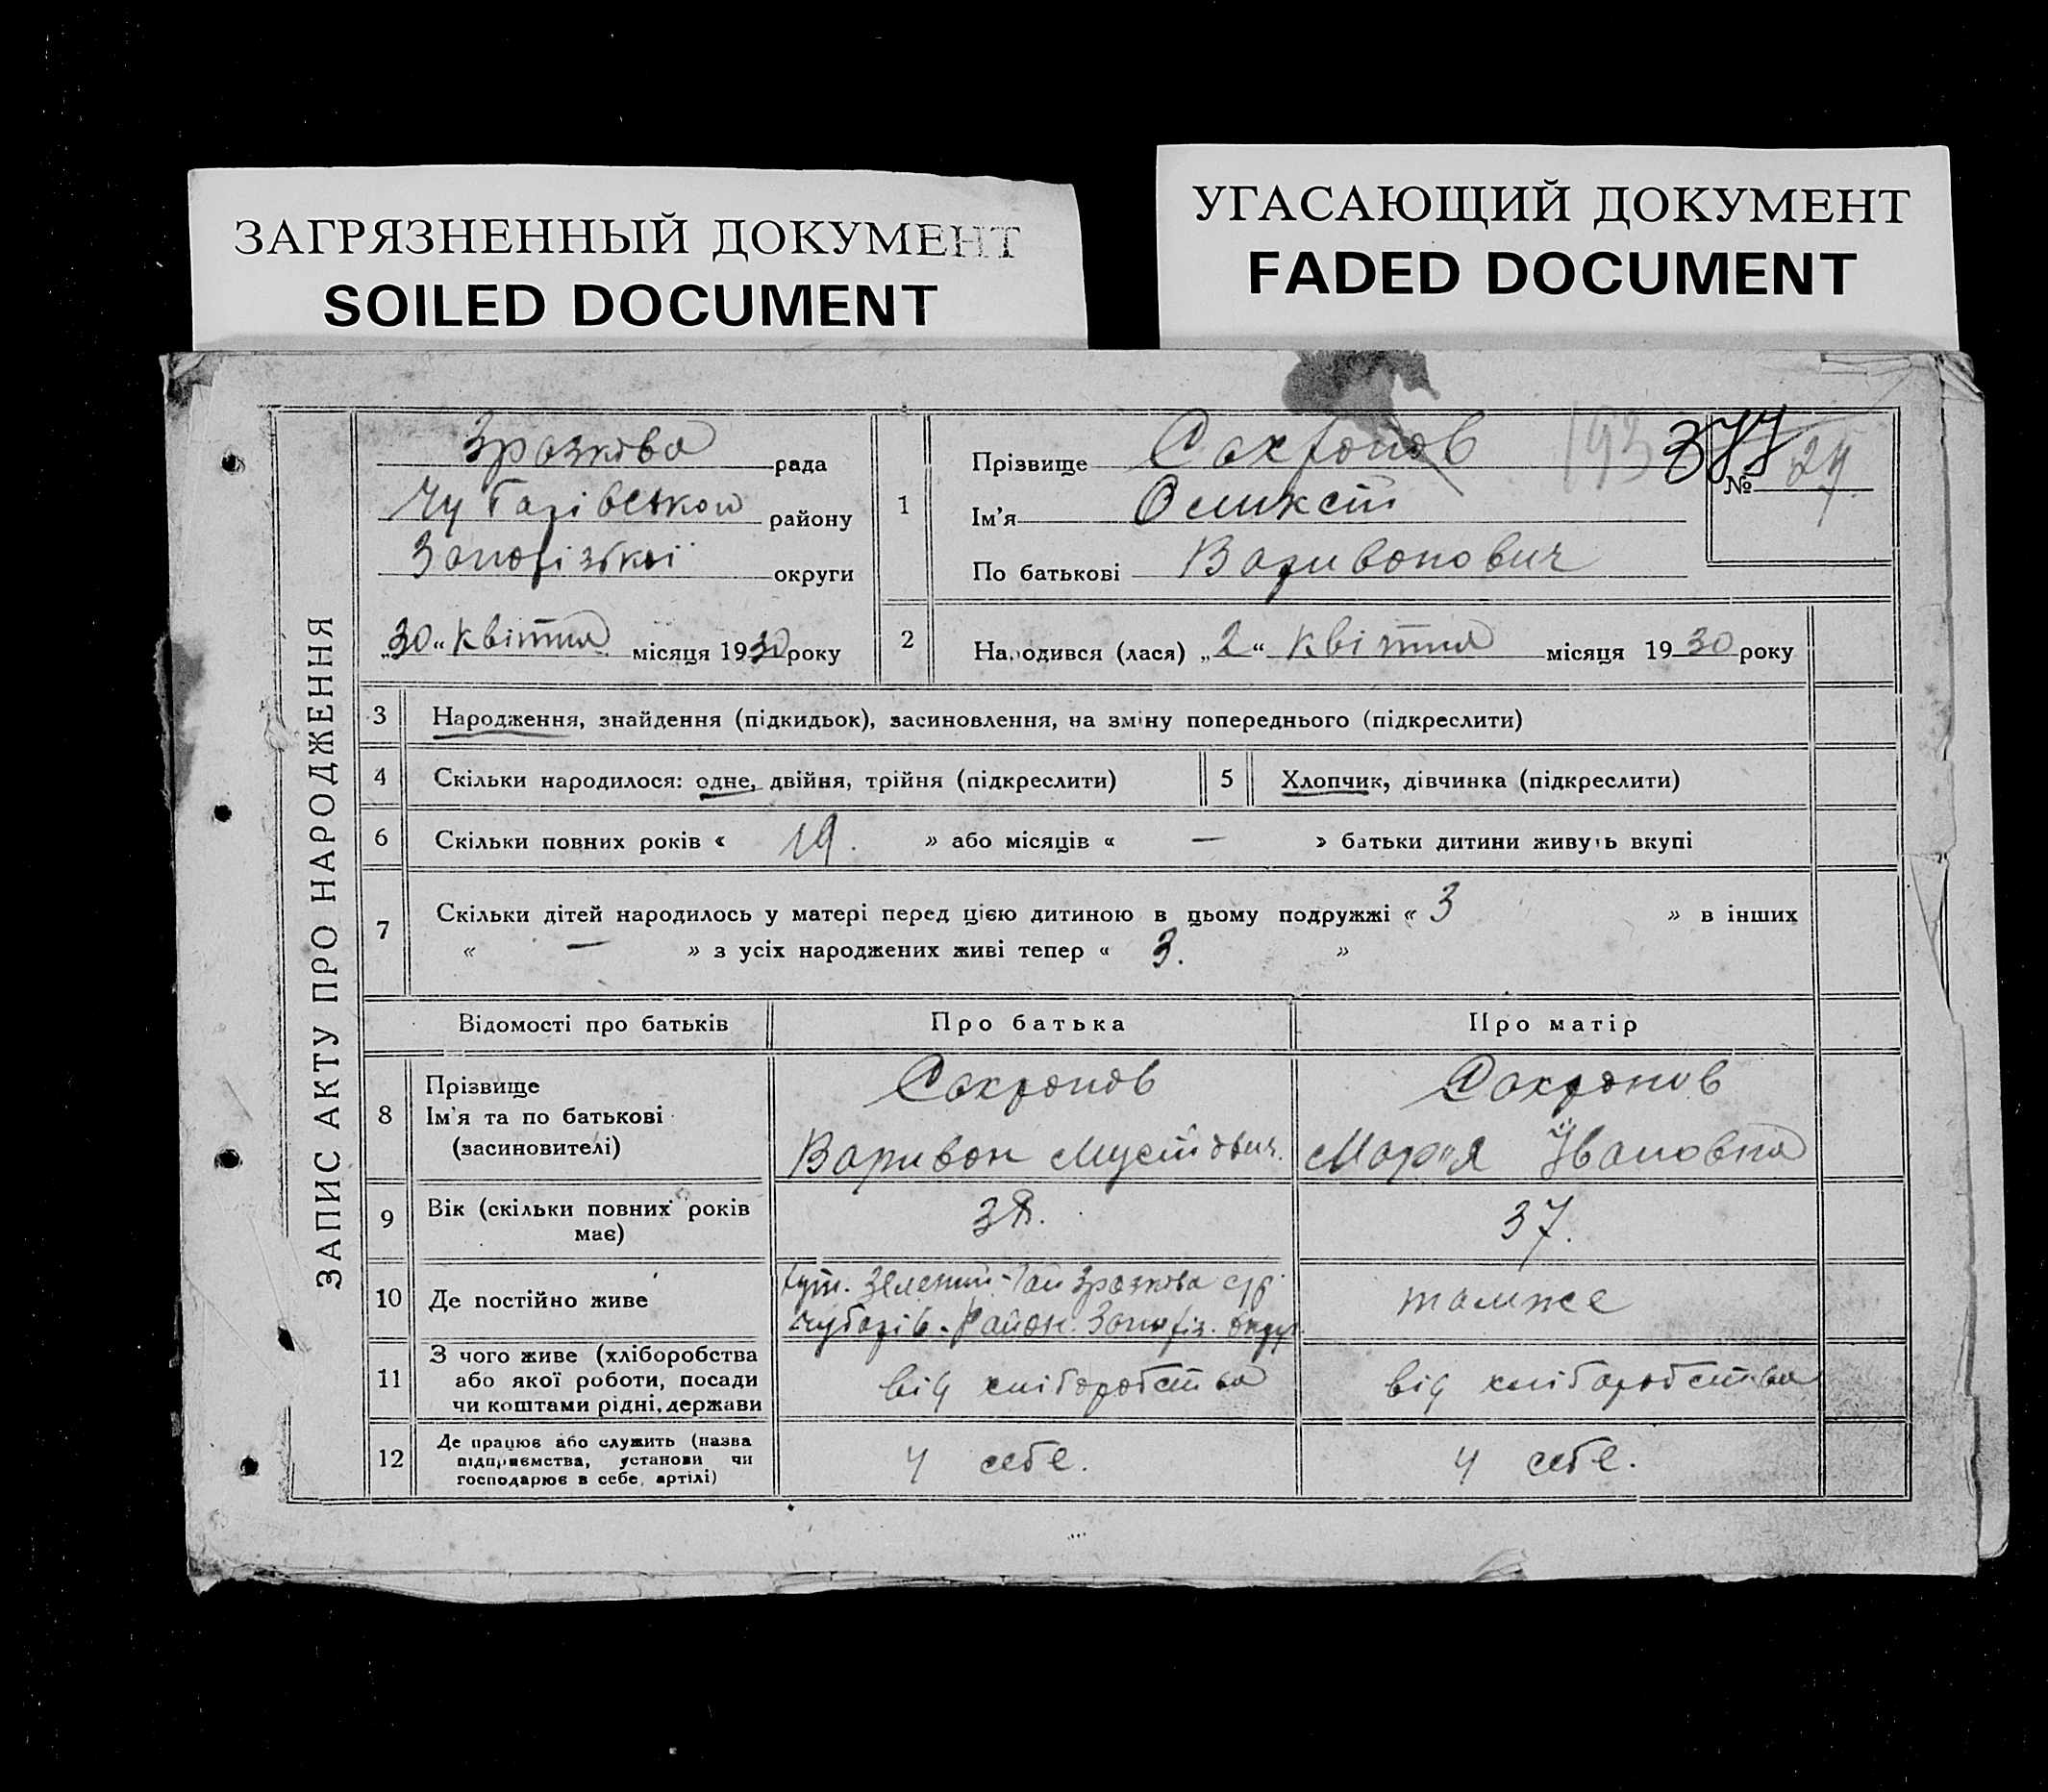 ЗАГРЯЗНЕННЫЙ ДОКУМЕНТ
SOILED DOCUMENT
УГАСАЮЩИЙ ДОКУМЕНТ
FADED DOCUMENT
ЗАПИС АКТУ ПРО НАРОДЖЕННЯ
Зразкова рада
Чубарівського району
Запорізької округи
„30“ квітня місяця 1930 року
1
Прізвище Сахронов
Ім'я
По батькові Варивонович
377
№ 24
2 Народився (лася) „2“ квітня місяця 1930 року
3 Народження, знайдення (підкидьок), засиновлення, на зміну попереднього (підкреслити)
4 Скільки народилося: одне, двійня, трійня (підкреслити) 5 Хлопчик, дівчинка (підкреслити)
6 Скільки повних років « 19. » або місяців « — » батьки дитини живуть вкупі
7 Скільки дітей народилось у матері перед цією дитиною в цьому подружжі « 3 » в інших
« — » з усіх народжених живі тепер « 3. »
Відомості про батьків Про батька Про матір
8 Прізвище
Ім'я та по батькові
(засиновителі)
Сахронов
Варивон
Сахронов
Мария Івановна
9 Вік (скільки повних років
має)
38. 37.
10 Де постійно живе
хут. Зелений-Гай Зразкова с/р
Чубарів. Район. Запоріз. округ.
тамже
11 З чого живе (хліборобства
або якої роботи, посади
чи коштами рідні, держави
від хліборобства від хліборобства
12 Де працює або служить (назва
підприємства, установи чи
господарює в себе, артілі)
у себе. у себе.